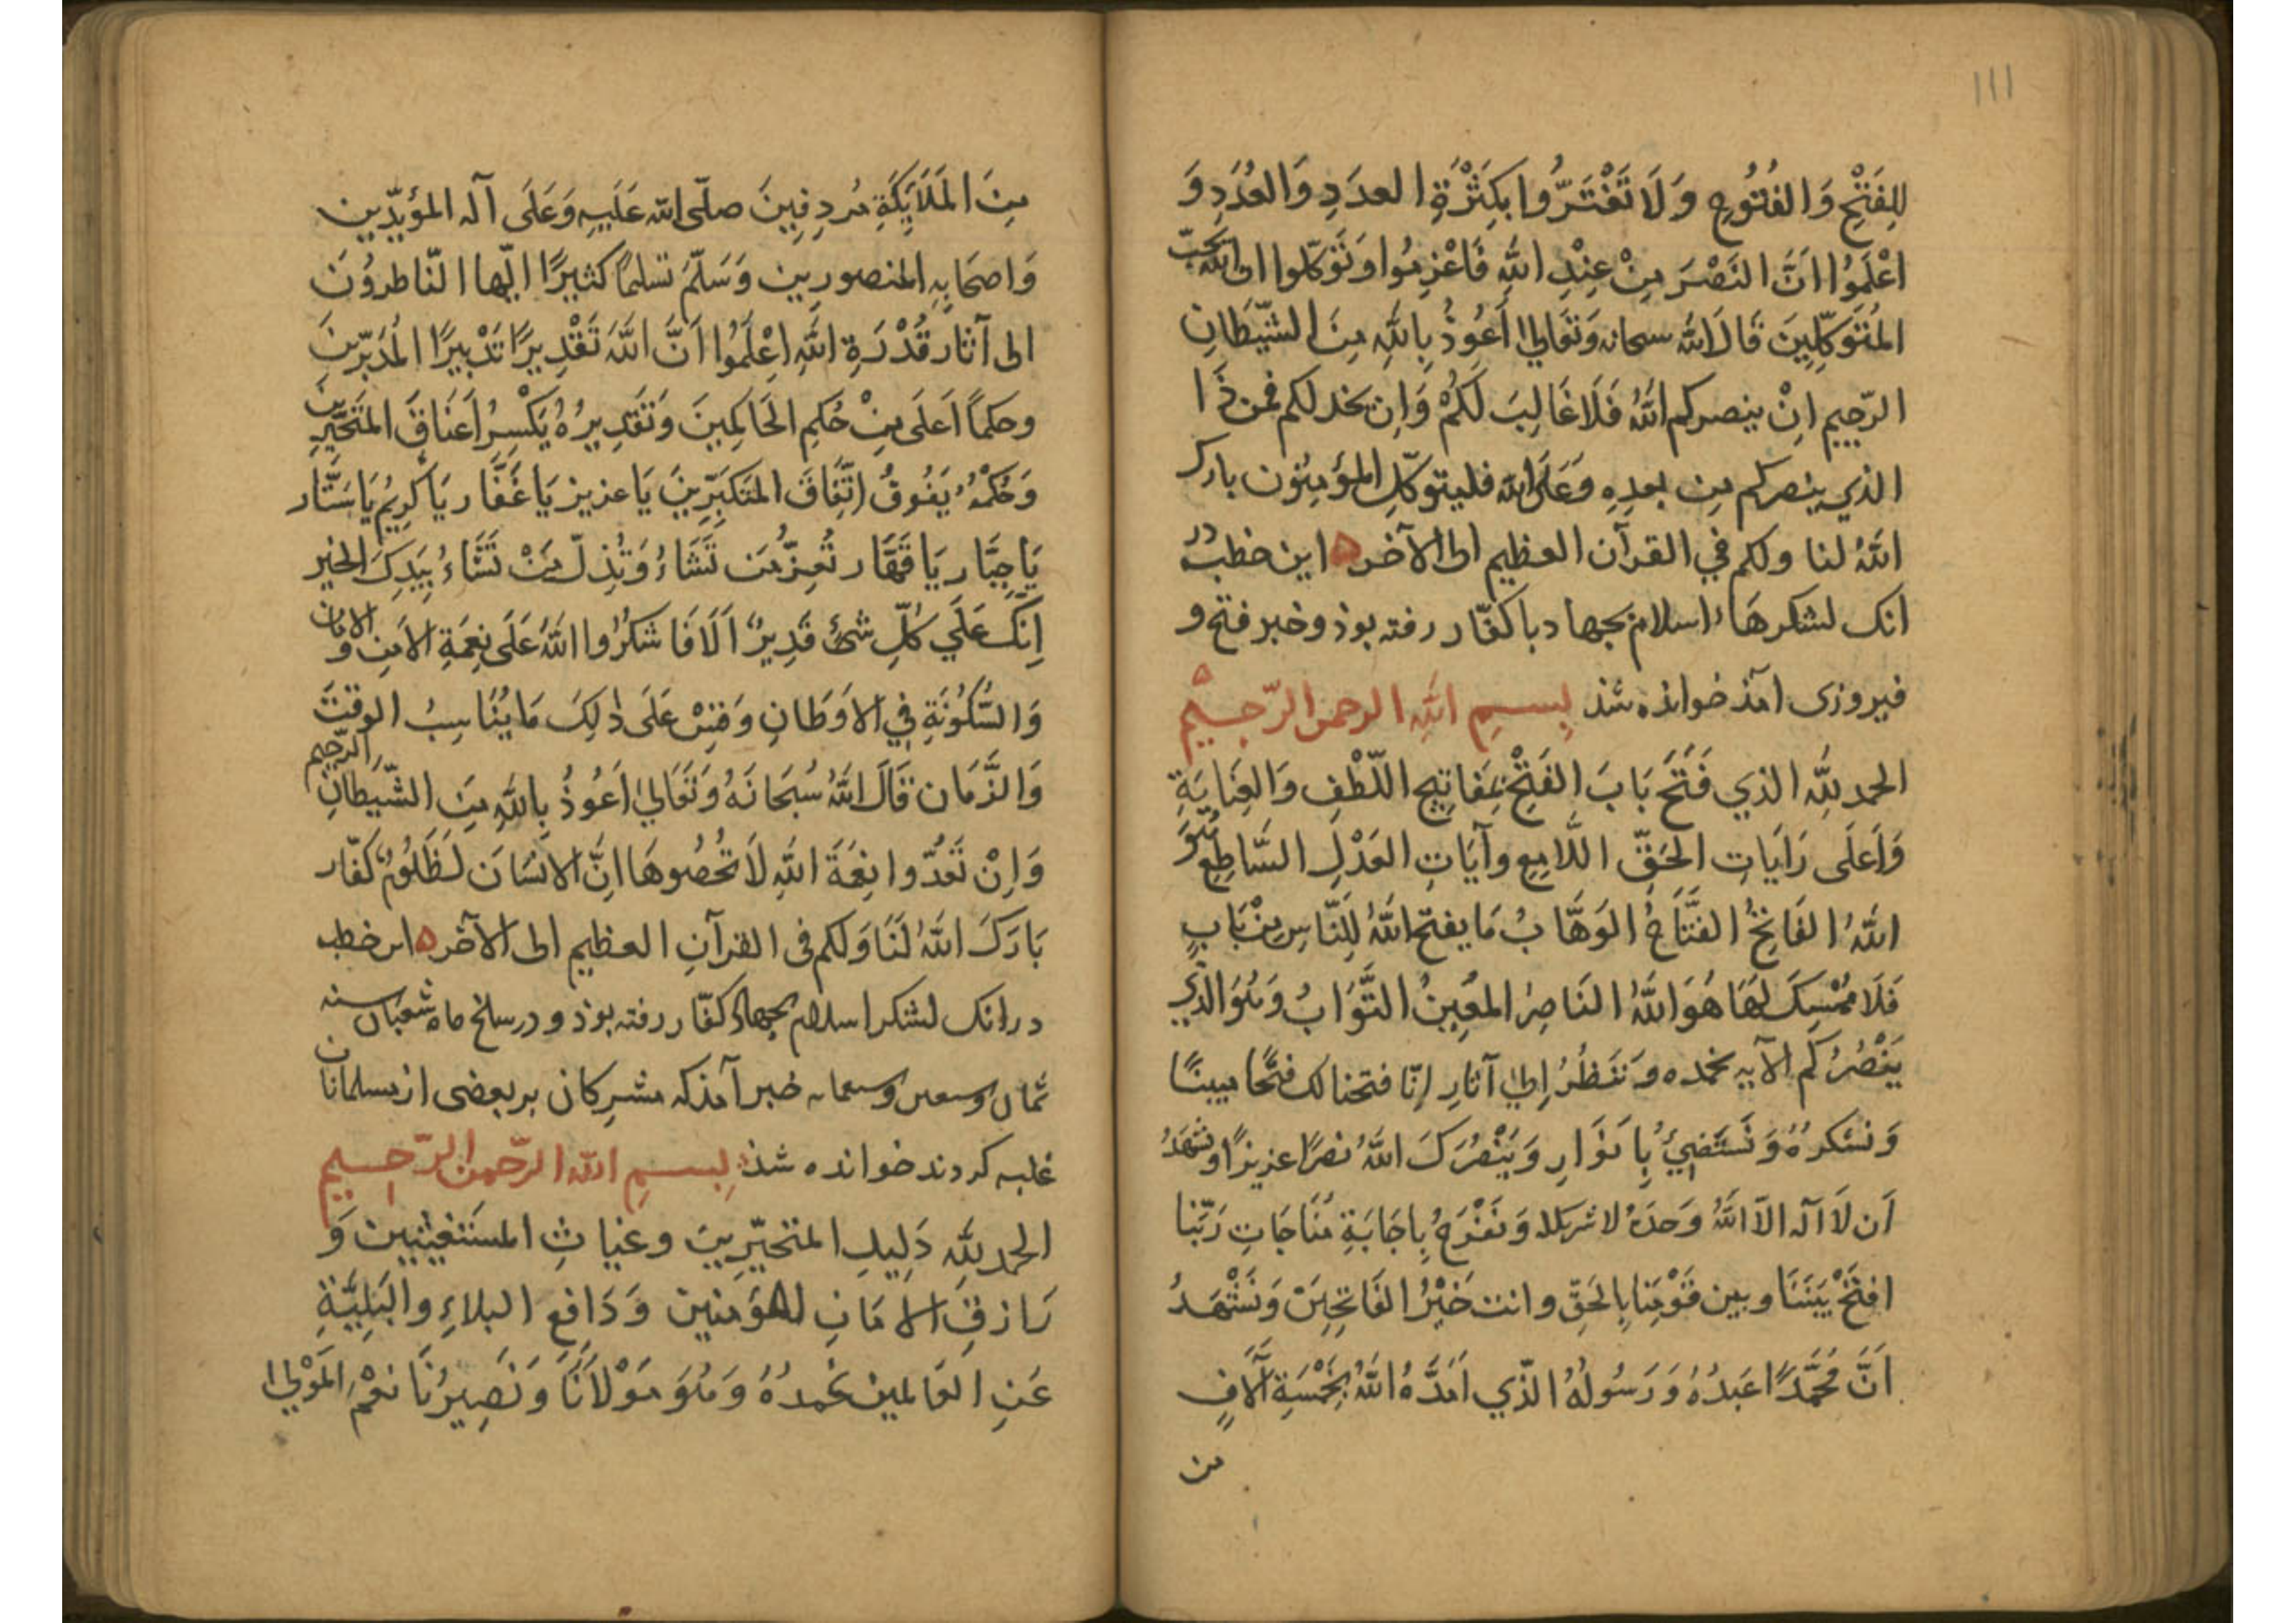 ١١١
لِلفَتْحِ وَالفُتُوحِ وَلَا تَغْتَرُّوا بِكَثْرَةِ العدَدِ وَالعُدَدِ وَ
اعْلَمُوا اَنَّ النَصْرَ مِنْ عِنْدِ اللهِ فَاعْزِمُوا وَتَوَكّلوا ان الله يحبّ
المُتَوَكِّلِينَ قَالَ الله سبحانه وَتَعَالىٰ اَعُوذُ بِاللهِ مِنَ الشَّيْطَانِ
الرّجيم اِنْ ينصركم اللهُ فَلَا غَالِبَ لَكُمْ وَاِن يخذلكم فمن ذَا
الذي ينصركم من بعدِهِ وَعَلَى الله فليتوكّلِ المؤمِنُون بارك
اللهُ لنا ولكم في القرآن العظيم الى الآخر ه این خطبه در
انک لشکرهَاء اسلام بجهاد با کفّار رفته بوذ و خبر فتح و
فیروزی امذ خوانده شذ بِسمِ اللهِ الرحمن الرّحيم
الحمد لِلّهِ الذي فَتَحَ بَابَ الفَتْحِ بمَفَاتِيحِ اللّطْفِ وَالعِنَايَةِ
وَاَعلَى رَايَاتِ الحَقِّ اللَّامِعِ وآيَاتِ العَدْلِ السَّاطِعِ هُوَ
اللهُ الفَاتِحُ الفتَّاحُ الوَهَّابُ مَا يفتح اللهُ لِلنَّاسِ مِنْ بَابٍ
فَلَا مُمْسِكَ لَهَا هُوَ اللهُ النَاصِرُ المُعِينُ التَّوَابُ وَهُوَ الذي
يَنْصُرُكُم الآيه نحمده وَنَنظُرُ اِلىٰ آثَارِ اِنّا فتحنا لك فَتْحًا مبينًا
وَنشكرهُ وَنَستَضِئُ بِاَنوَارِ وَيَنْصُرَكَ اللهُ نصرًا عزيزًا ونشهَدُ
اَن لَا اله الّا اللهُ وَحدَهُ لا شريك له وَنَفْرَحُ بِاِجَابَةِ مُنَاجَاتِ رَبّنا
افتَحْ بَيْنَنَا وبين قَوْمِنَا بِالحَقِّ وانت خَيْرُ الفَاتِحِينَ وَنَشْهَدُ
اَنَّ مُحَمَّدًا عَبدُهُ وَرَسُولُهُ الّذي اَمَدَّهُ اللهُ بِخَمْسَةِ آلَافٍ
من
مِنَ المَلَايِكَةِ مُردِفِينَ صلّى الله عَلَيهِ وَعَلَى آله المؤيّدين
وَاصحَابِهِ المنصورين وَسَلّمَ تسليمًا كثيرًا ايّها النّاظروُنَ
الى آثار قُدْرَةِ اللهِ اِعْلَمُوا اَنَّ اللهَ تَقْدِيرًا تَدْبِيرًا المُدَبّرِينَ
وحكمًا اَعلَى مِنْ حُكمِ الحَاكِمِينَ وَتَقدِيرُهُ يَكْسِرُ اَعنَاقَ المتَجَبِّرِينَ
وَحُكمُهُ يَفُوقُ اتِّفَاقَ المتَكَبِّرِينَ يَا عزيز يَا غَفَّار يَا كَرِيمُ يَا سَتَّار
يَا جبَّار يَا قَهَّار تُعِزُّ مَن تَشَاءُ وَتُذِلّ مَنْ تَشَاءُ بِيَدِكَ الخير
اِنَّكَ عَلَي كُلِّ شَئ قَدِيرٌ اَلَا فَاشكرُوا اللهَ عَلَى نِعمَةِ الامنِ وَالامَان
وَالسُّكُونَةِ فِي الاَوطَانِ وَقِسْ عَلَى ذٰلِكَ مَا يُنَاسِبُ الوقتَ
وَالزَّمَان قَالَ اللهُ سُبحَانَهُ وَتَعَالىٰ اَعُوذُ بِاللهِ مِنَ الشّيطَانِ الرّجيم
وَاِنْ تَعُدّوا نِعمَةَ اللهِ لَا تُحصُوهَا اِنَّ الاِنسَانَ لَظَلُومٌ كفّار
بَارَكَ اللهُ لَنَا وَلكم فى القرآنِ العظيم الى الآخر ه این خطبه
در انک لشکر اسلام بجهاد کفّار رفته بوذ و در سلخ ماه شعبان سنه
ثمان وسبعین وسبعمایه خبر آمذ که مشرکان بر بعضی از مسلمانان
غلبه کردند خوانده شذ بِسمِ الله الرّحمن الرّحيم
الحمد لِلّهِ دَلِيلِ المتحَيِّرِينَ وغياثِ المستَغيثِيِنَ وَ
رَازِقِ الامَانِ للمؤمنين وَدَافِعِ البلاءِ والبَلِيَّةِ
عَنِ العَالمين نَحمدُهُ وَهُوَ مَوْلَانَا وَنَصِيرُنَا نعْمَ المَوْلىٰ